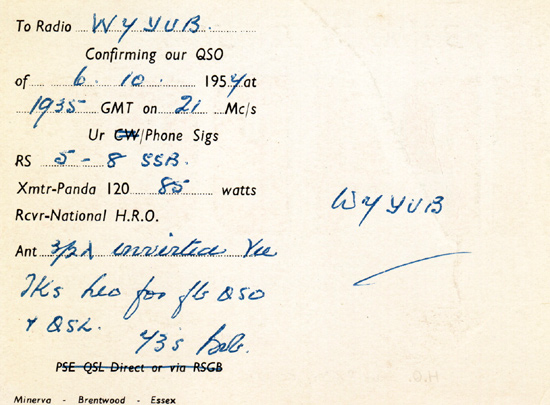 To Radio W4YUB.
Confirming our QSO
of 6. 10. 1954 at
1935 GMT on 21 Mc/s
Ur CW/Phone Sigs
RS 5-8 SSB.
Xmtr-Panda 120 85 watts
Rcvr-National H.R.O.
Ant invirted Vee
TKs Leo for fb QSO
& QSL.
73s Bob.
PSE QSL Direct or via RSGB
Minerva - Brentwood - Essex
W4YUB